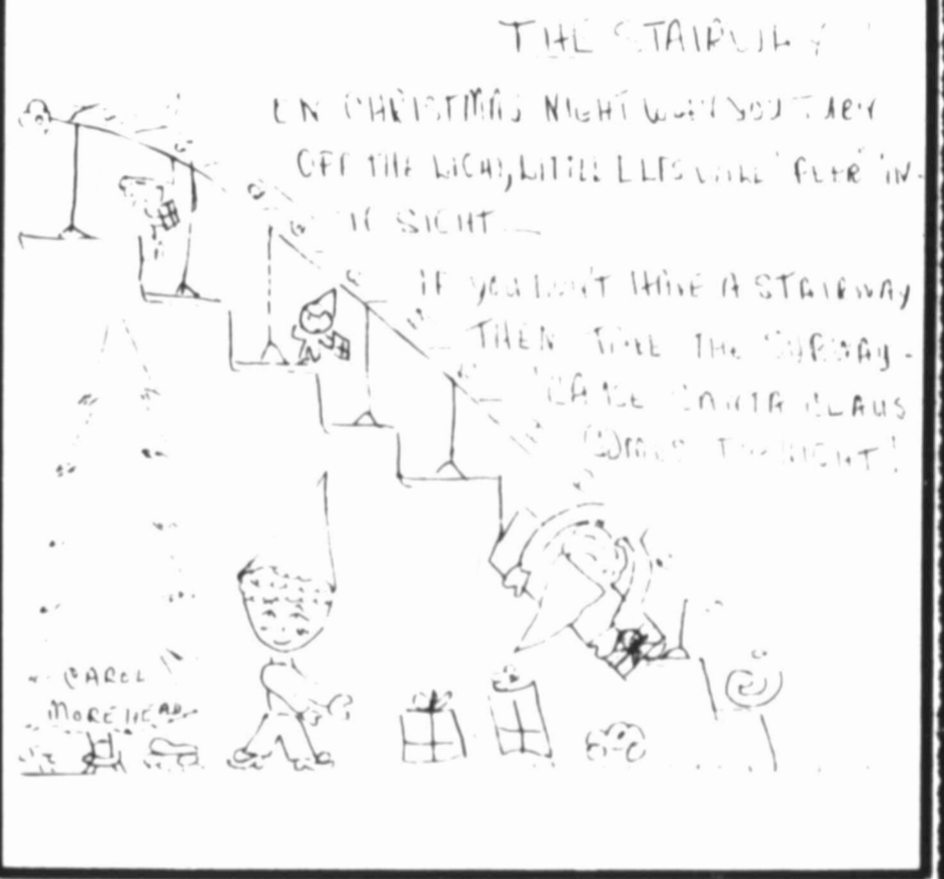 THE STAIRWAY
ON CHRISTMAS NIGHT WHEN YOU
OFF THE LIGHT, LITTLE ELFS WILL IN
SIGHT
IF YOU DON'T HAVE A STAIRWAY
THEN TAKE THE SUBWAY -
'CAUSE SANTA CLAUS
COMES TONIGHT!
CAROL
MOREHEAD